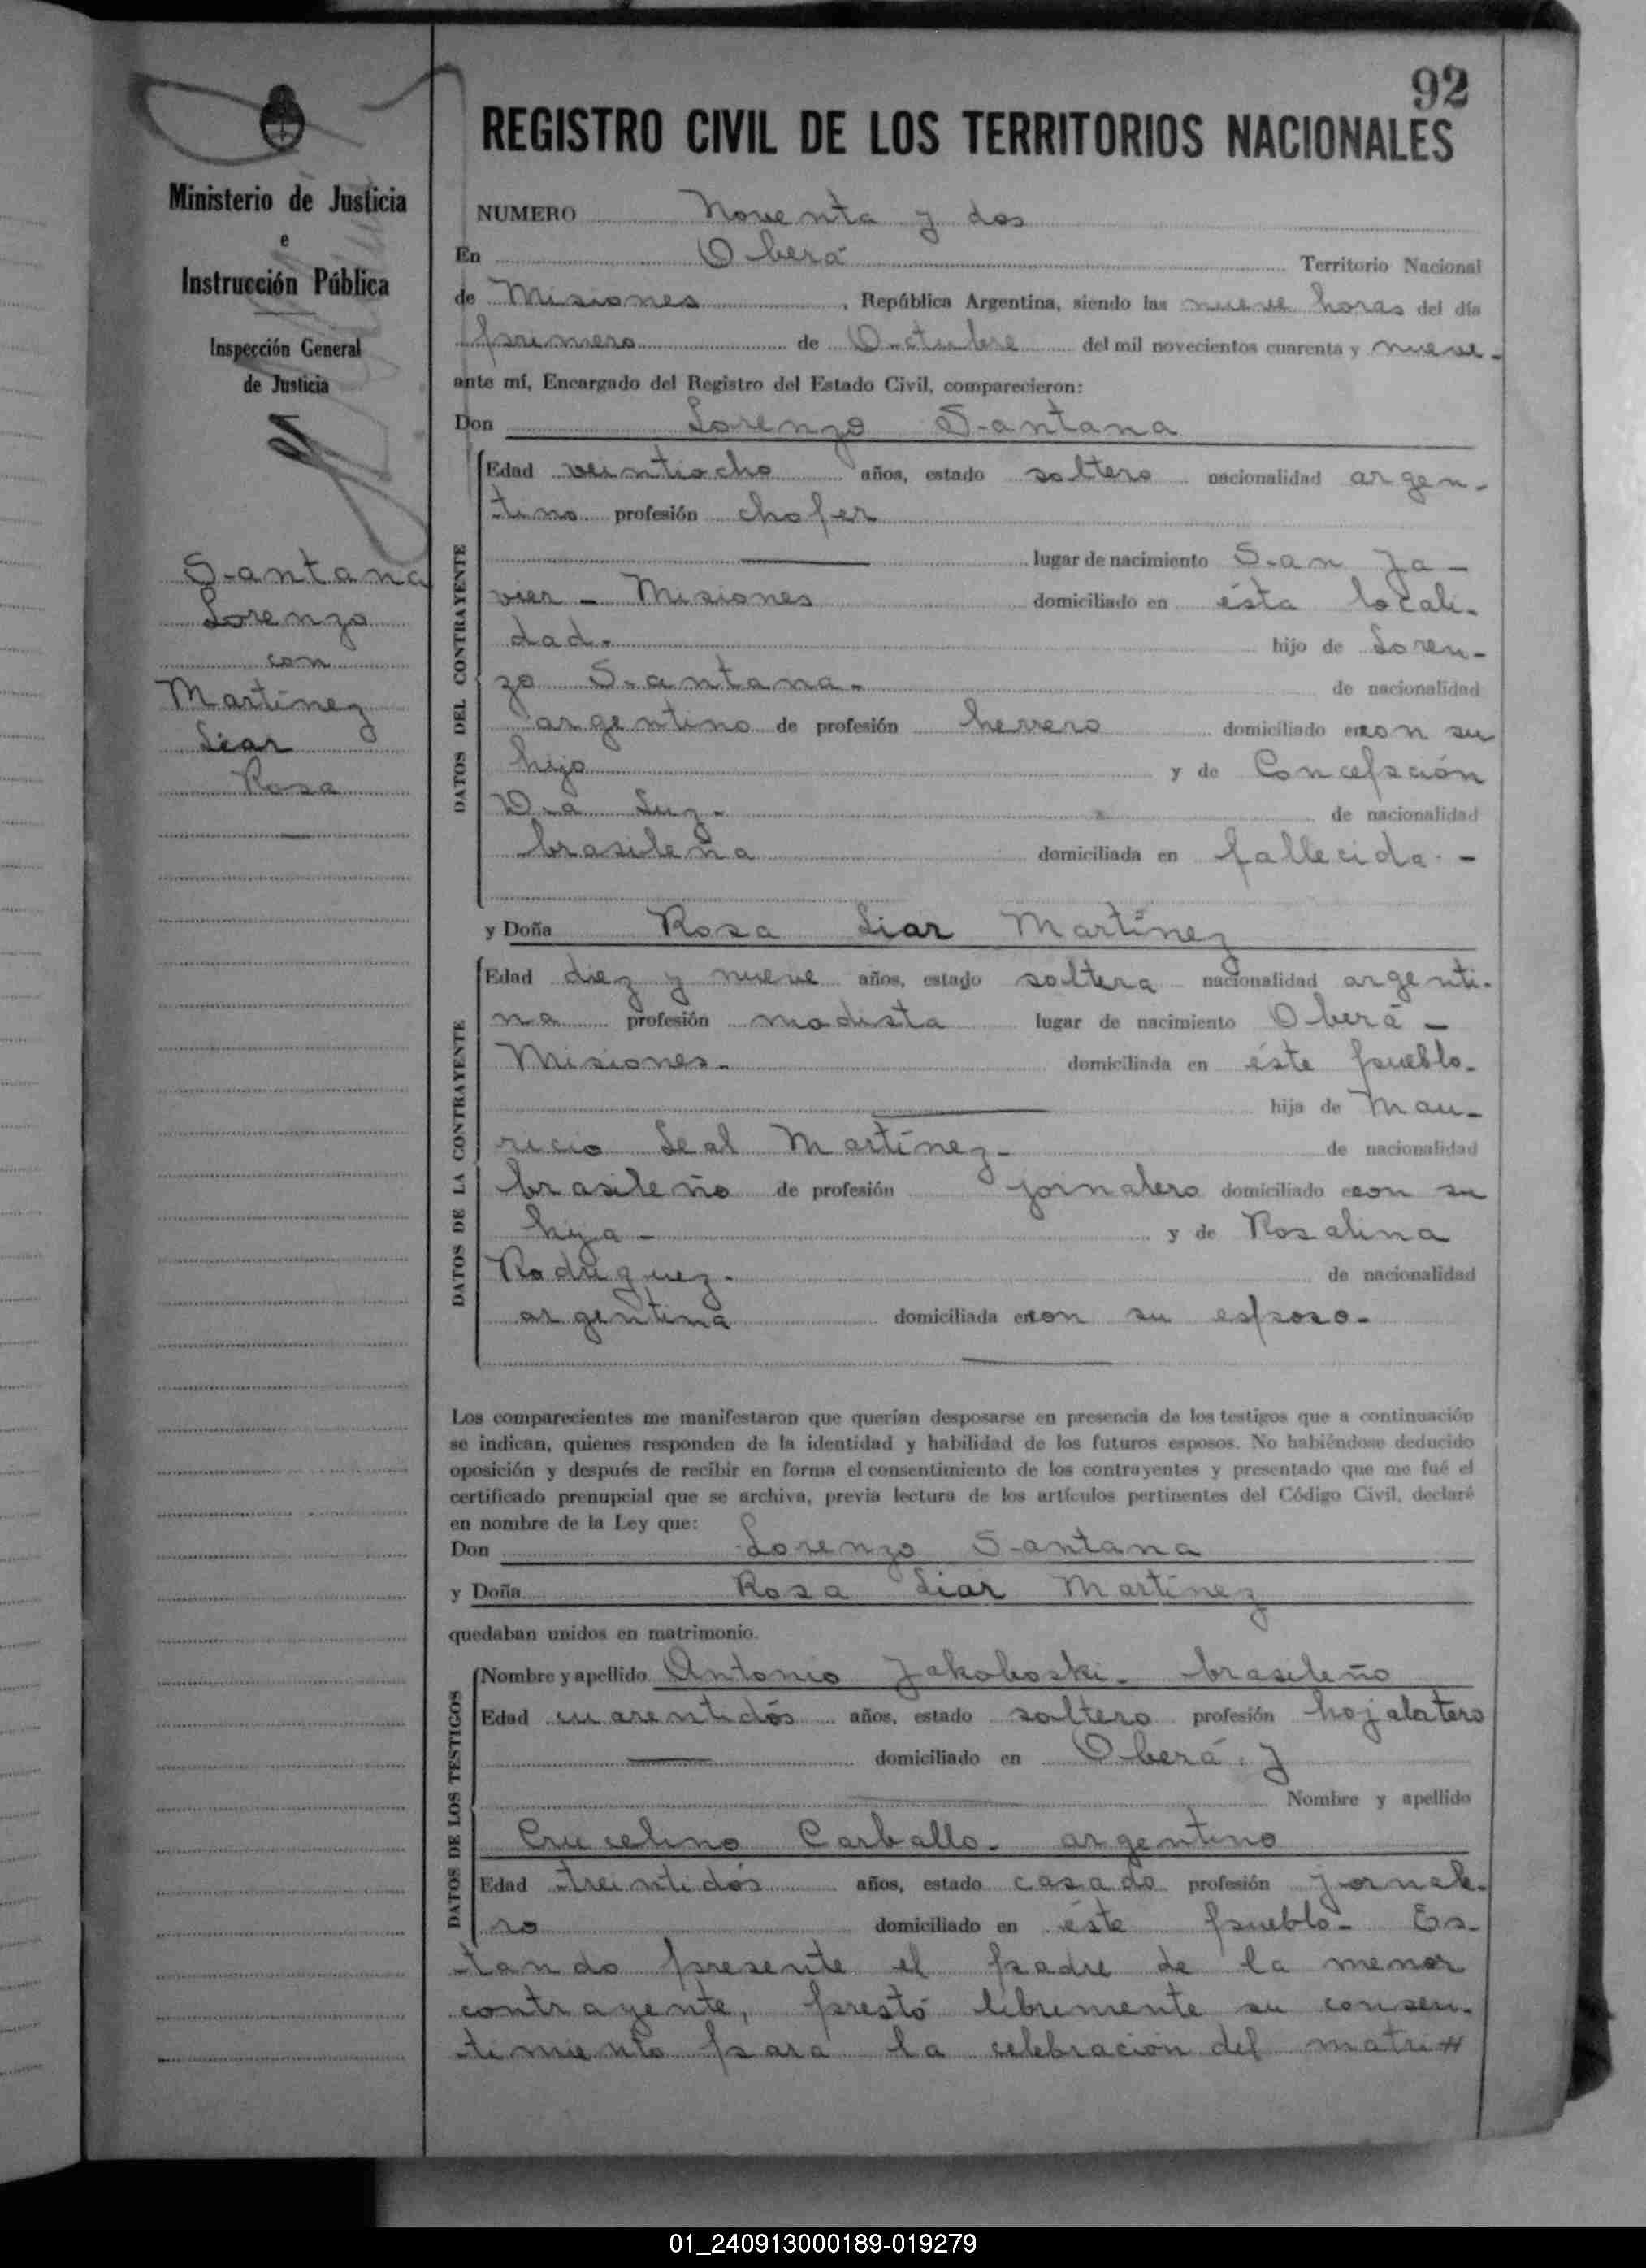 92
REGISTRO CIVIL DE LOS TERRITORIOS NACIONALES
Ministerio de Justicia
e
Instrucción Pública
Inspección General
de Justicia
Santana
Lorenzo
con
Martínez
Liar
Rosa
NUMERO Noventa y dos
En Oberá Territorio Nacional
de Misiones, República Argentina, siendo las nueve horas del día
primero de Octubre del mil novecientos cuarenta y nueve.
ante mí, Encargado del Registro del Estado Civil, comparecieron:
Don Lorenzo Santana
DATOS DEL CONTRAYENTE
Edad veintiocho años, estado soltero nacionalidad argen-
tino profesión chofer
lugar de nacimiento San Ja-
vier - Misiones domiciliado en ésta locali-
dad. hijo de Loren-
zo Santana. de nacionalidad
argentino de profesión herrero domiciliado en con su
hijo y de Concepción
Da Luz. de nacionalidad
brasileña domiciliada en fallecida. -
y Doña Rosa Liar Martínez
DATOS DE LA CONTRAYENTE
Edad diez y nueve años, estado soltera nacionalidad argenti-
na profesión modista lugar de nacimiento Oberá -
Misiones. domiciliada en éste pueblo.
hija de Mau-
ricio Leal Martínez. de nacionalidad
brasileño de profesión jornalero domiciliado en con su
hija - y de Rosalina
Rodríguez. de nacionalidad
argentina domiciliada en con su esposo.
Los comparecientes me manifestaron que querían desposarse en presencia de los testigos que a continuación
se indican, quienes responden de la identidad y habilidad de los futuros esposos. No habiéndose deducido
oposición y después de recibir en forma el consentimiento de los contrayentes y presentado que me fué el
certificado prenupcial que se archiva, previa lectura de los artículos pertinentes del Código Civil, declaré
en nombre de la Ley que:
Don Lorenzo Santana
y Doña Rosa Liar Martínez
quedaban unidos en matrimonio.
DATOS DE LOS TESTIGOS
Nombre y apellido Antonio Jakoboski. brasileño
Edad cuarentidós años, estado soltero profesión hojalatero
domiciliado en Oberá y
Nombre y apellido
Crucelino Carballo. argentino
Edad treintidós años, estado casado profesión jornale-
ro domiciliado en éste pueblo. Es-
tando presente el padre de la menor
contrayente, prestó libremente su consen-
timiento para la celebración del matri #
01_240913000189-019279